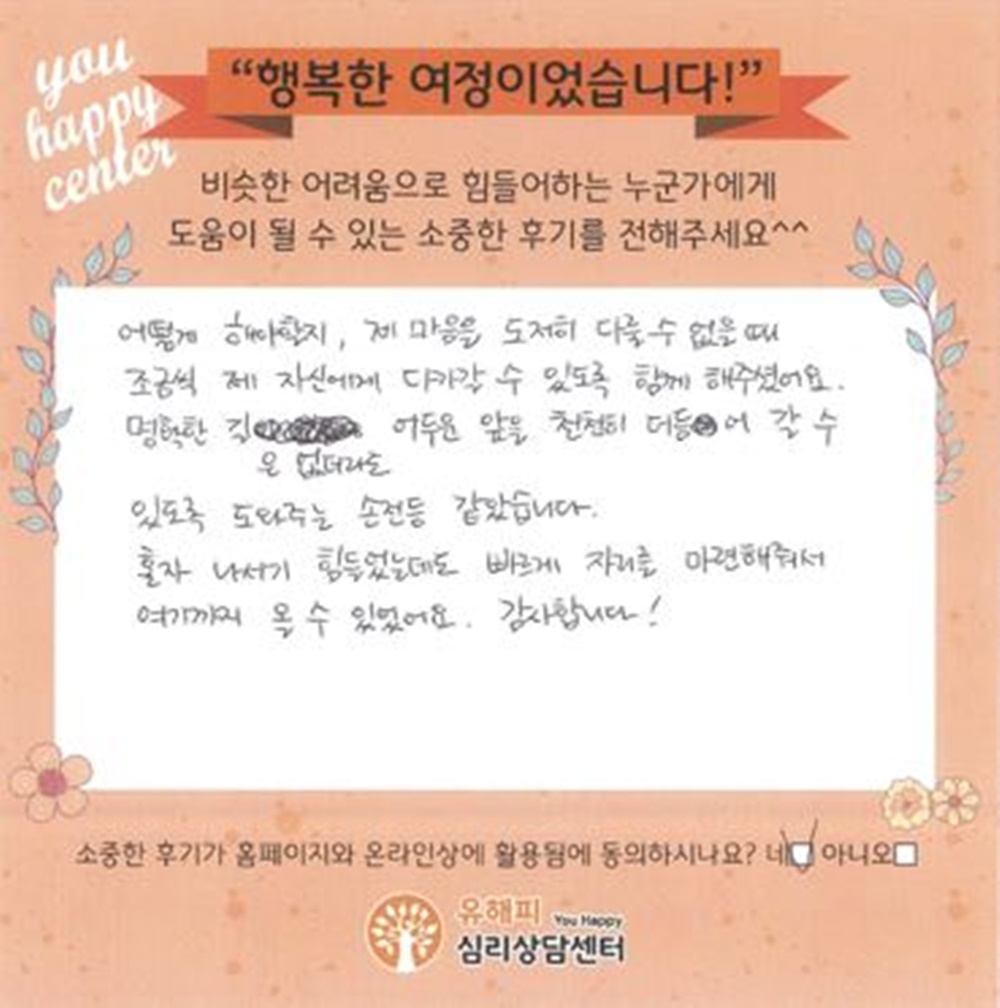 you
happy
center
“행복한 여정이었습니다!”
비슷한 어려움으로 힘들어하는 누군가에게
도움이 될 수 있는 소중한 후기를 전해주세요^^
어떻게 해야할지, 제 마음을 도저히 다룰 수 없을 때
조금씩 제 자신에게 다가갈 수 있도록 함께 해주셨어요.
명확한 길은 없더라도 어두운 앞을 천천히 더듬어 갈 수
있도록 도와주는 손전등 같았습니다.
홀자 나서기 힘들었는데도 빠르게 자리를 마련해줘서
여기까지 올 수 있었어요. 감사합니다!
소중한 후기가 홈페이지와 온라인상에 활용됨에 동의하시나요? 네 아니오
유해피 You Happy
심리상담센터